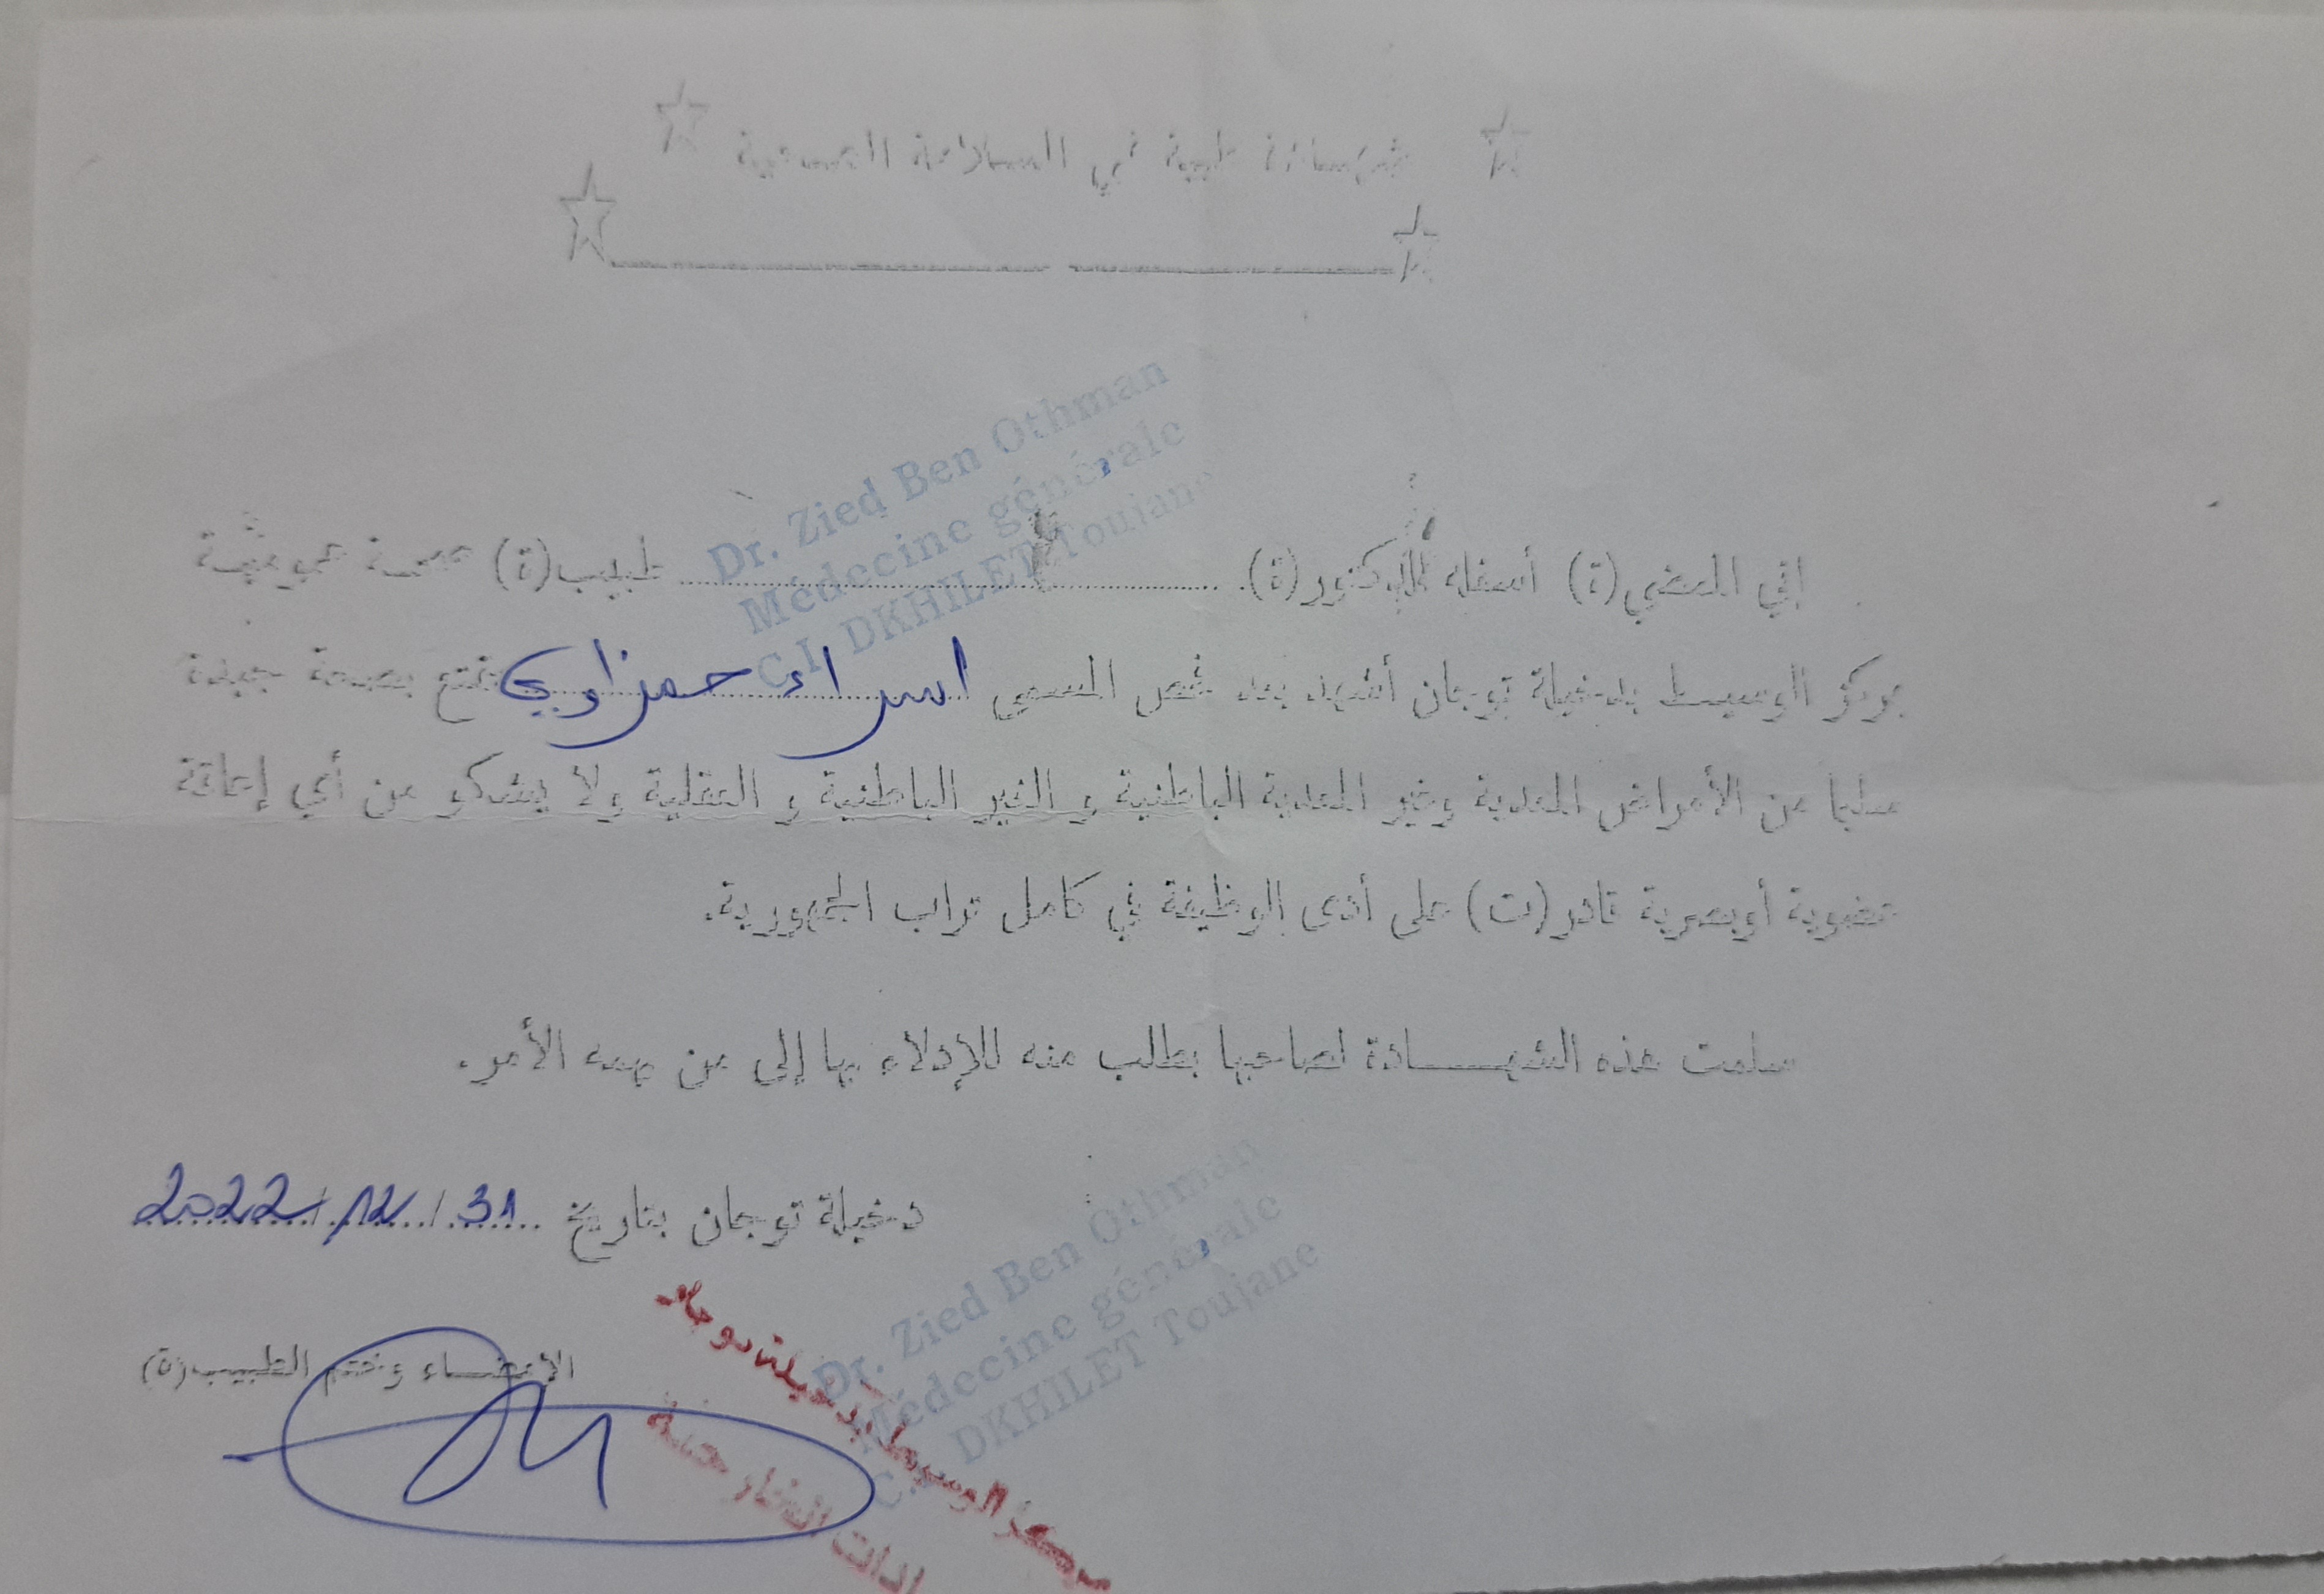 شهادة طبية في السلامة الصحية
Dr. Zied Ben Othman
Médecine générale
C.I. DKHILET Toujane
إني الممضي(ة) أسفله الدكتور(ة) طبيب(ة) صحة عمومية
بمركز الوسيط بدخيلة توجان أشهد بعد فحص المسمى اسراء حمزاوي يتمتع بصحة جيدة
سليما من الأمراض المعدية وغير المعدية الباطنية و الغير الباطنية و العقلية ولا يشكو من أي إعاقة
عضوية أوبصرية قادر(ت) على أدى الوظيفة في كامل تراب الجمهورية.
سلمت هذه الشهادة لصاحبها بطلب منه للإدلاء بها إلى من يهمه الأمر.
دخيلة توجان بتاريخ 31/12/2022
الأمضاء وختم الطبيب(ة)
Dr. Zied Ben Othman
Médecine générale
C.I. DKHILET Toujane
مركز الوسيط بدخيلة توجان